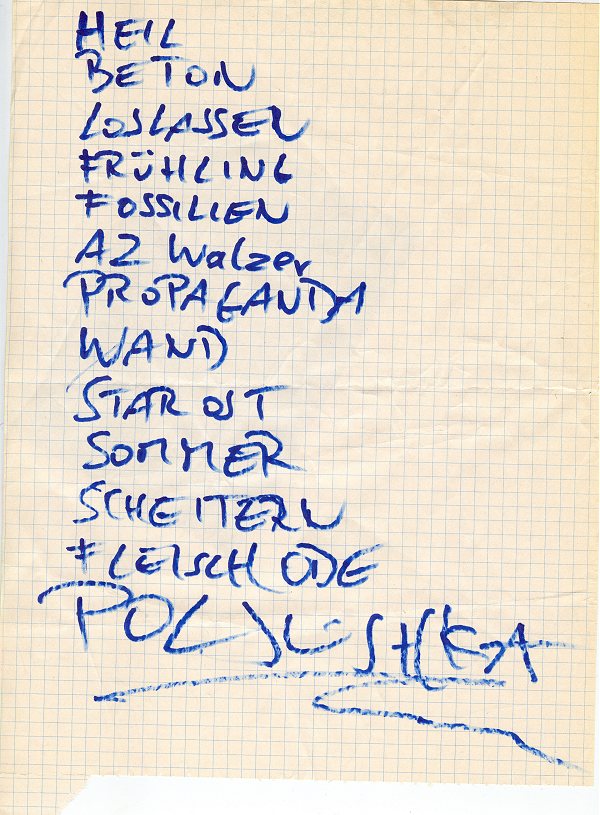 HEIL
BETON
LOSLASSEN
FRÜHLING
FOSSILIEN
AZ Walzer
PROPAGANDA
WAND
STAR OST
SOMMER
SCHEITERN
FLEISCH ODE
POLJUSHKA